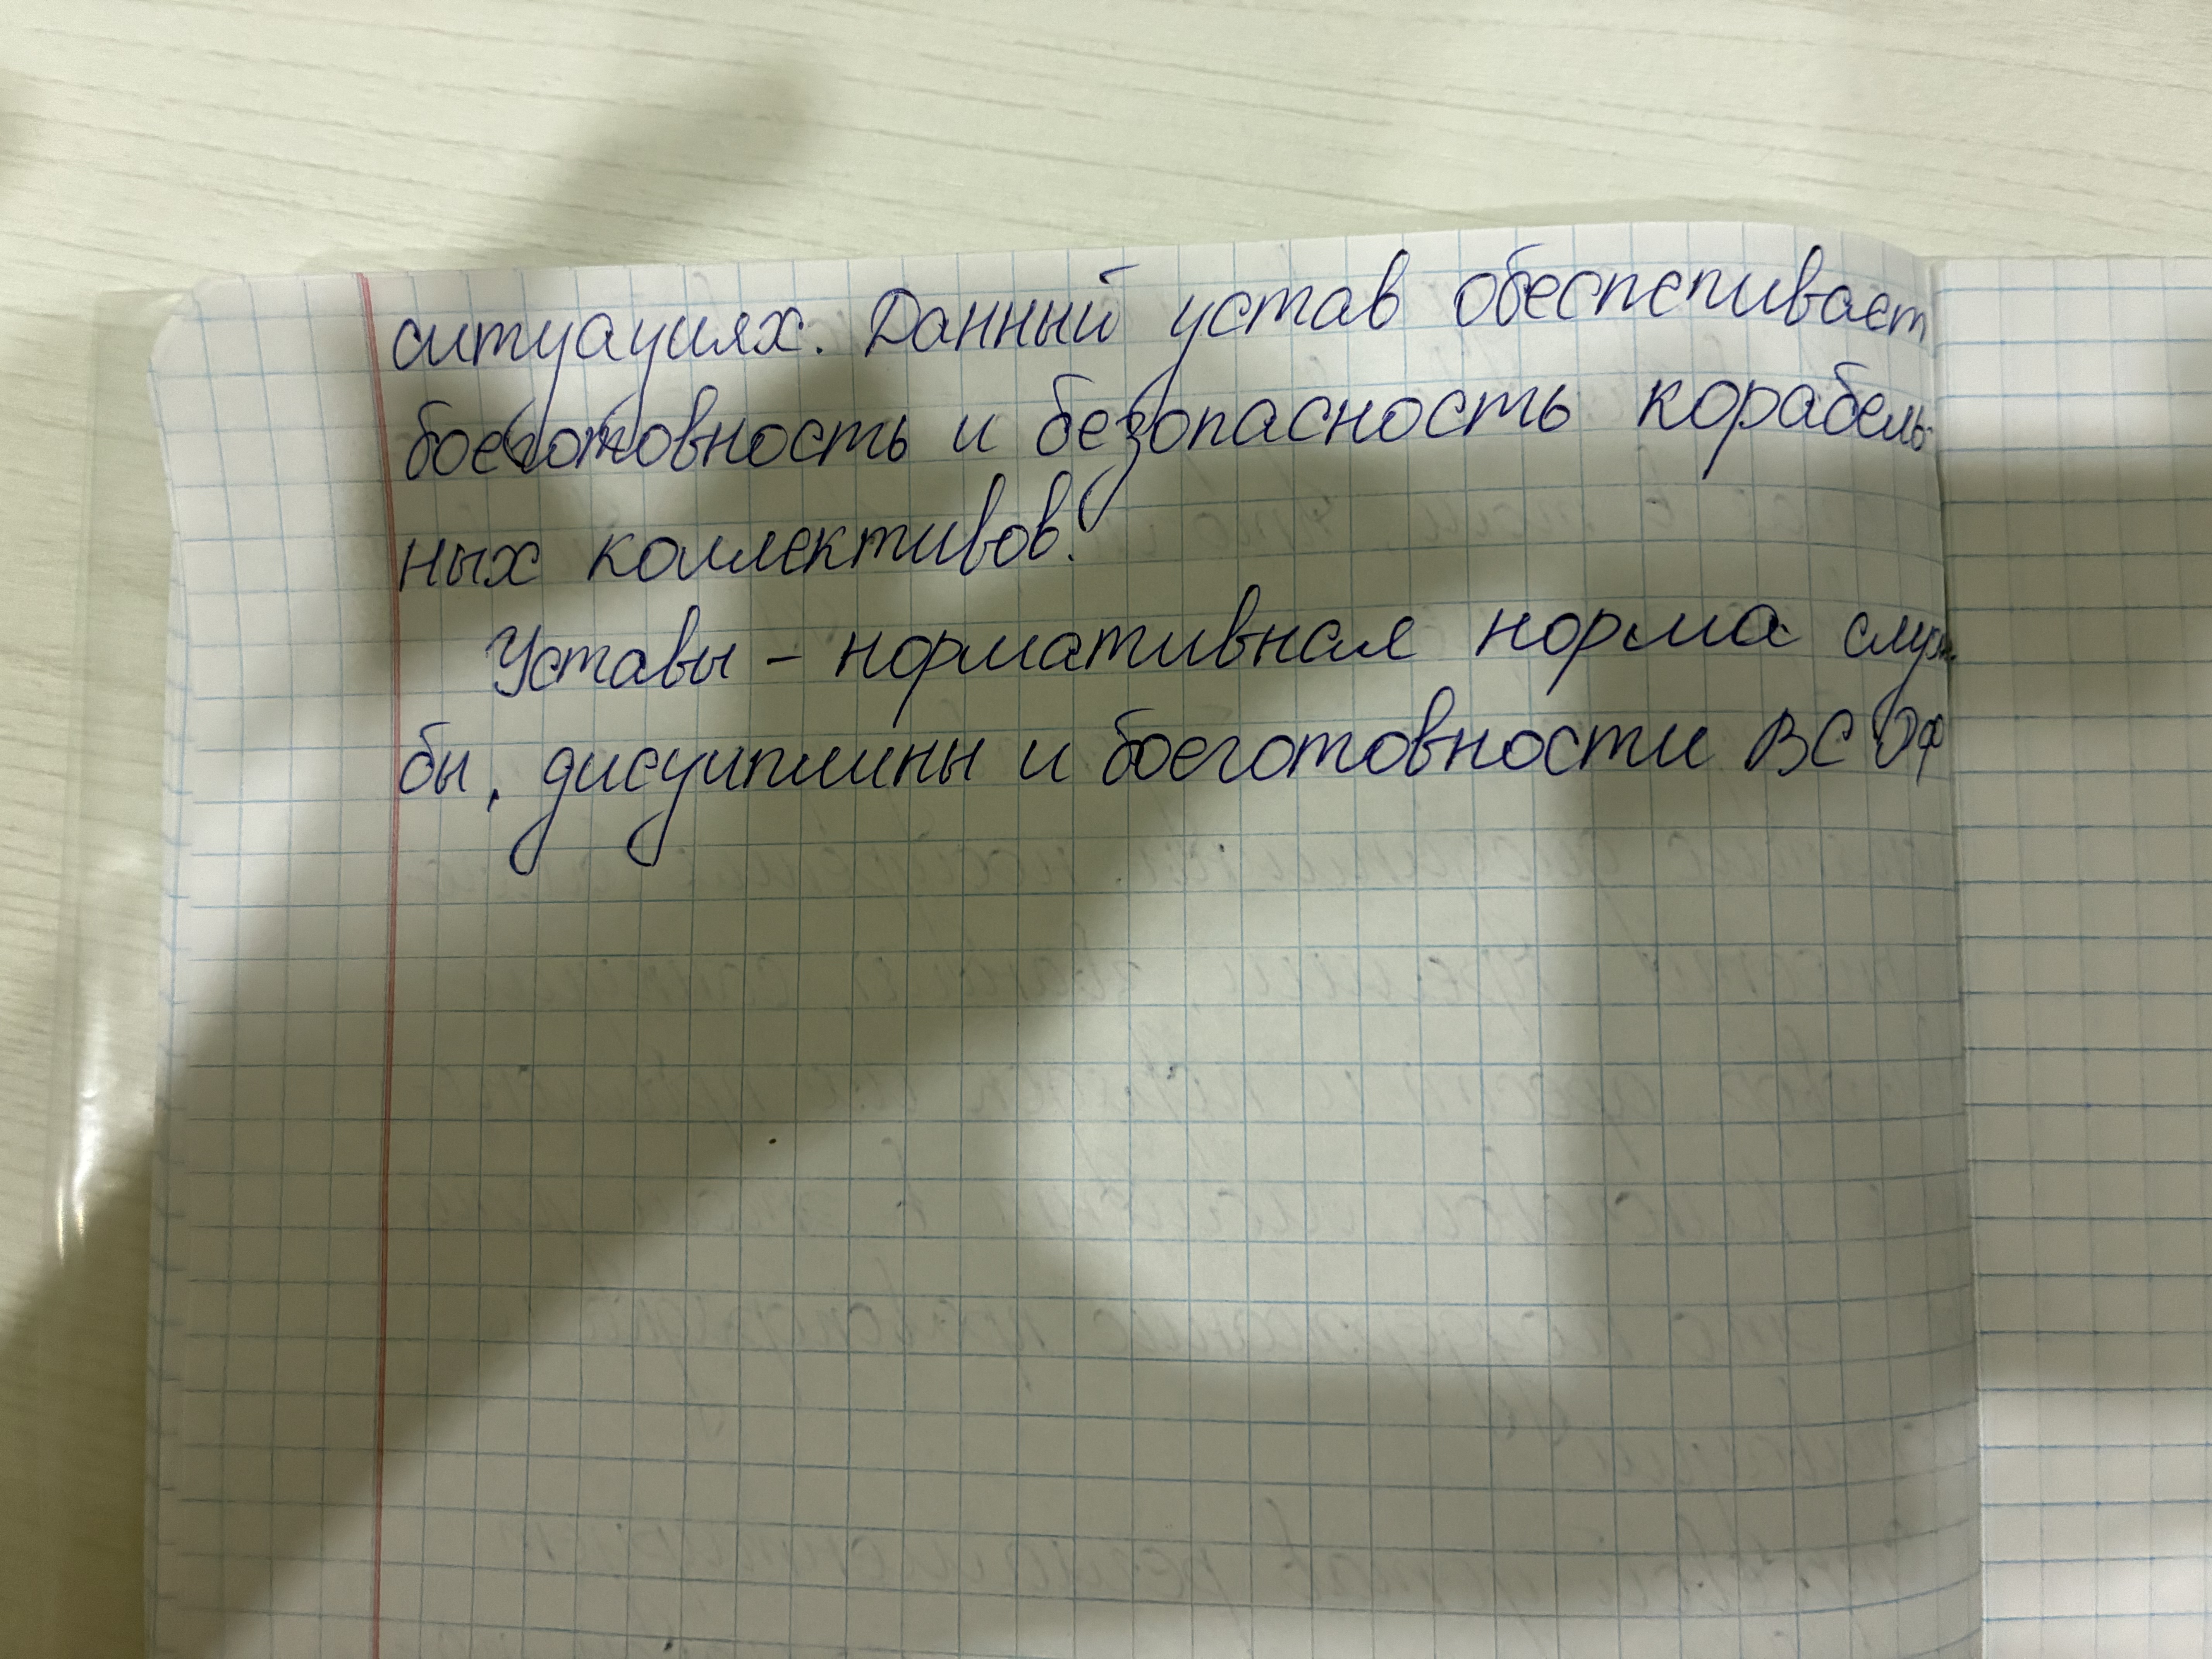 ситуациях. Данный устав обеспечивает
боеготовность и безопасность корабель-
ных коллективов.
Уставы – нормативная норма служ-
бы, дисциплины и боеготовности ВС РФ